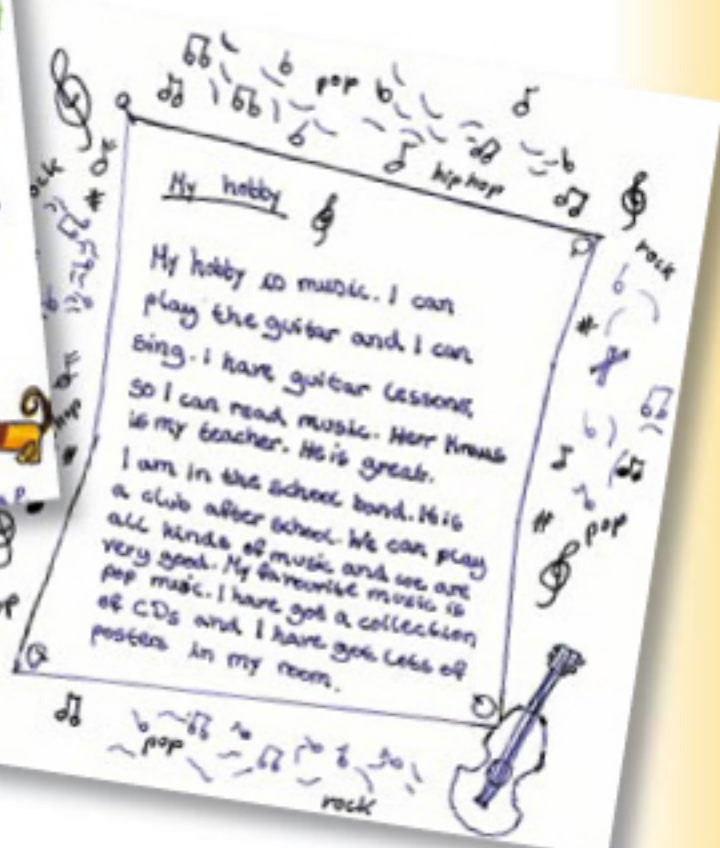 pop
hip hop
rock
My hobby
My hobby is music. I can
play the guitar and I can
sing. I have guitar lessons,
so I can read music. Herr Kraus
is my teacher. He is great.
I am in the school band. It is
a club after school. We can play
all kinds of music and we are
very good. My favourite music is
pop music. I have got a collection
of CDs and I have got lots of
posters in my room.
pop
pop
rock